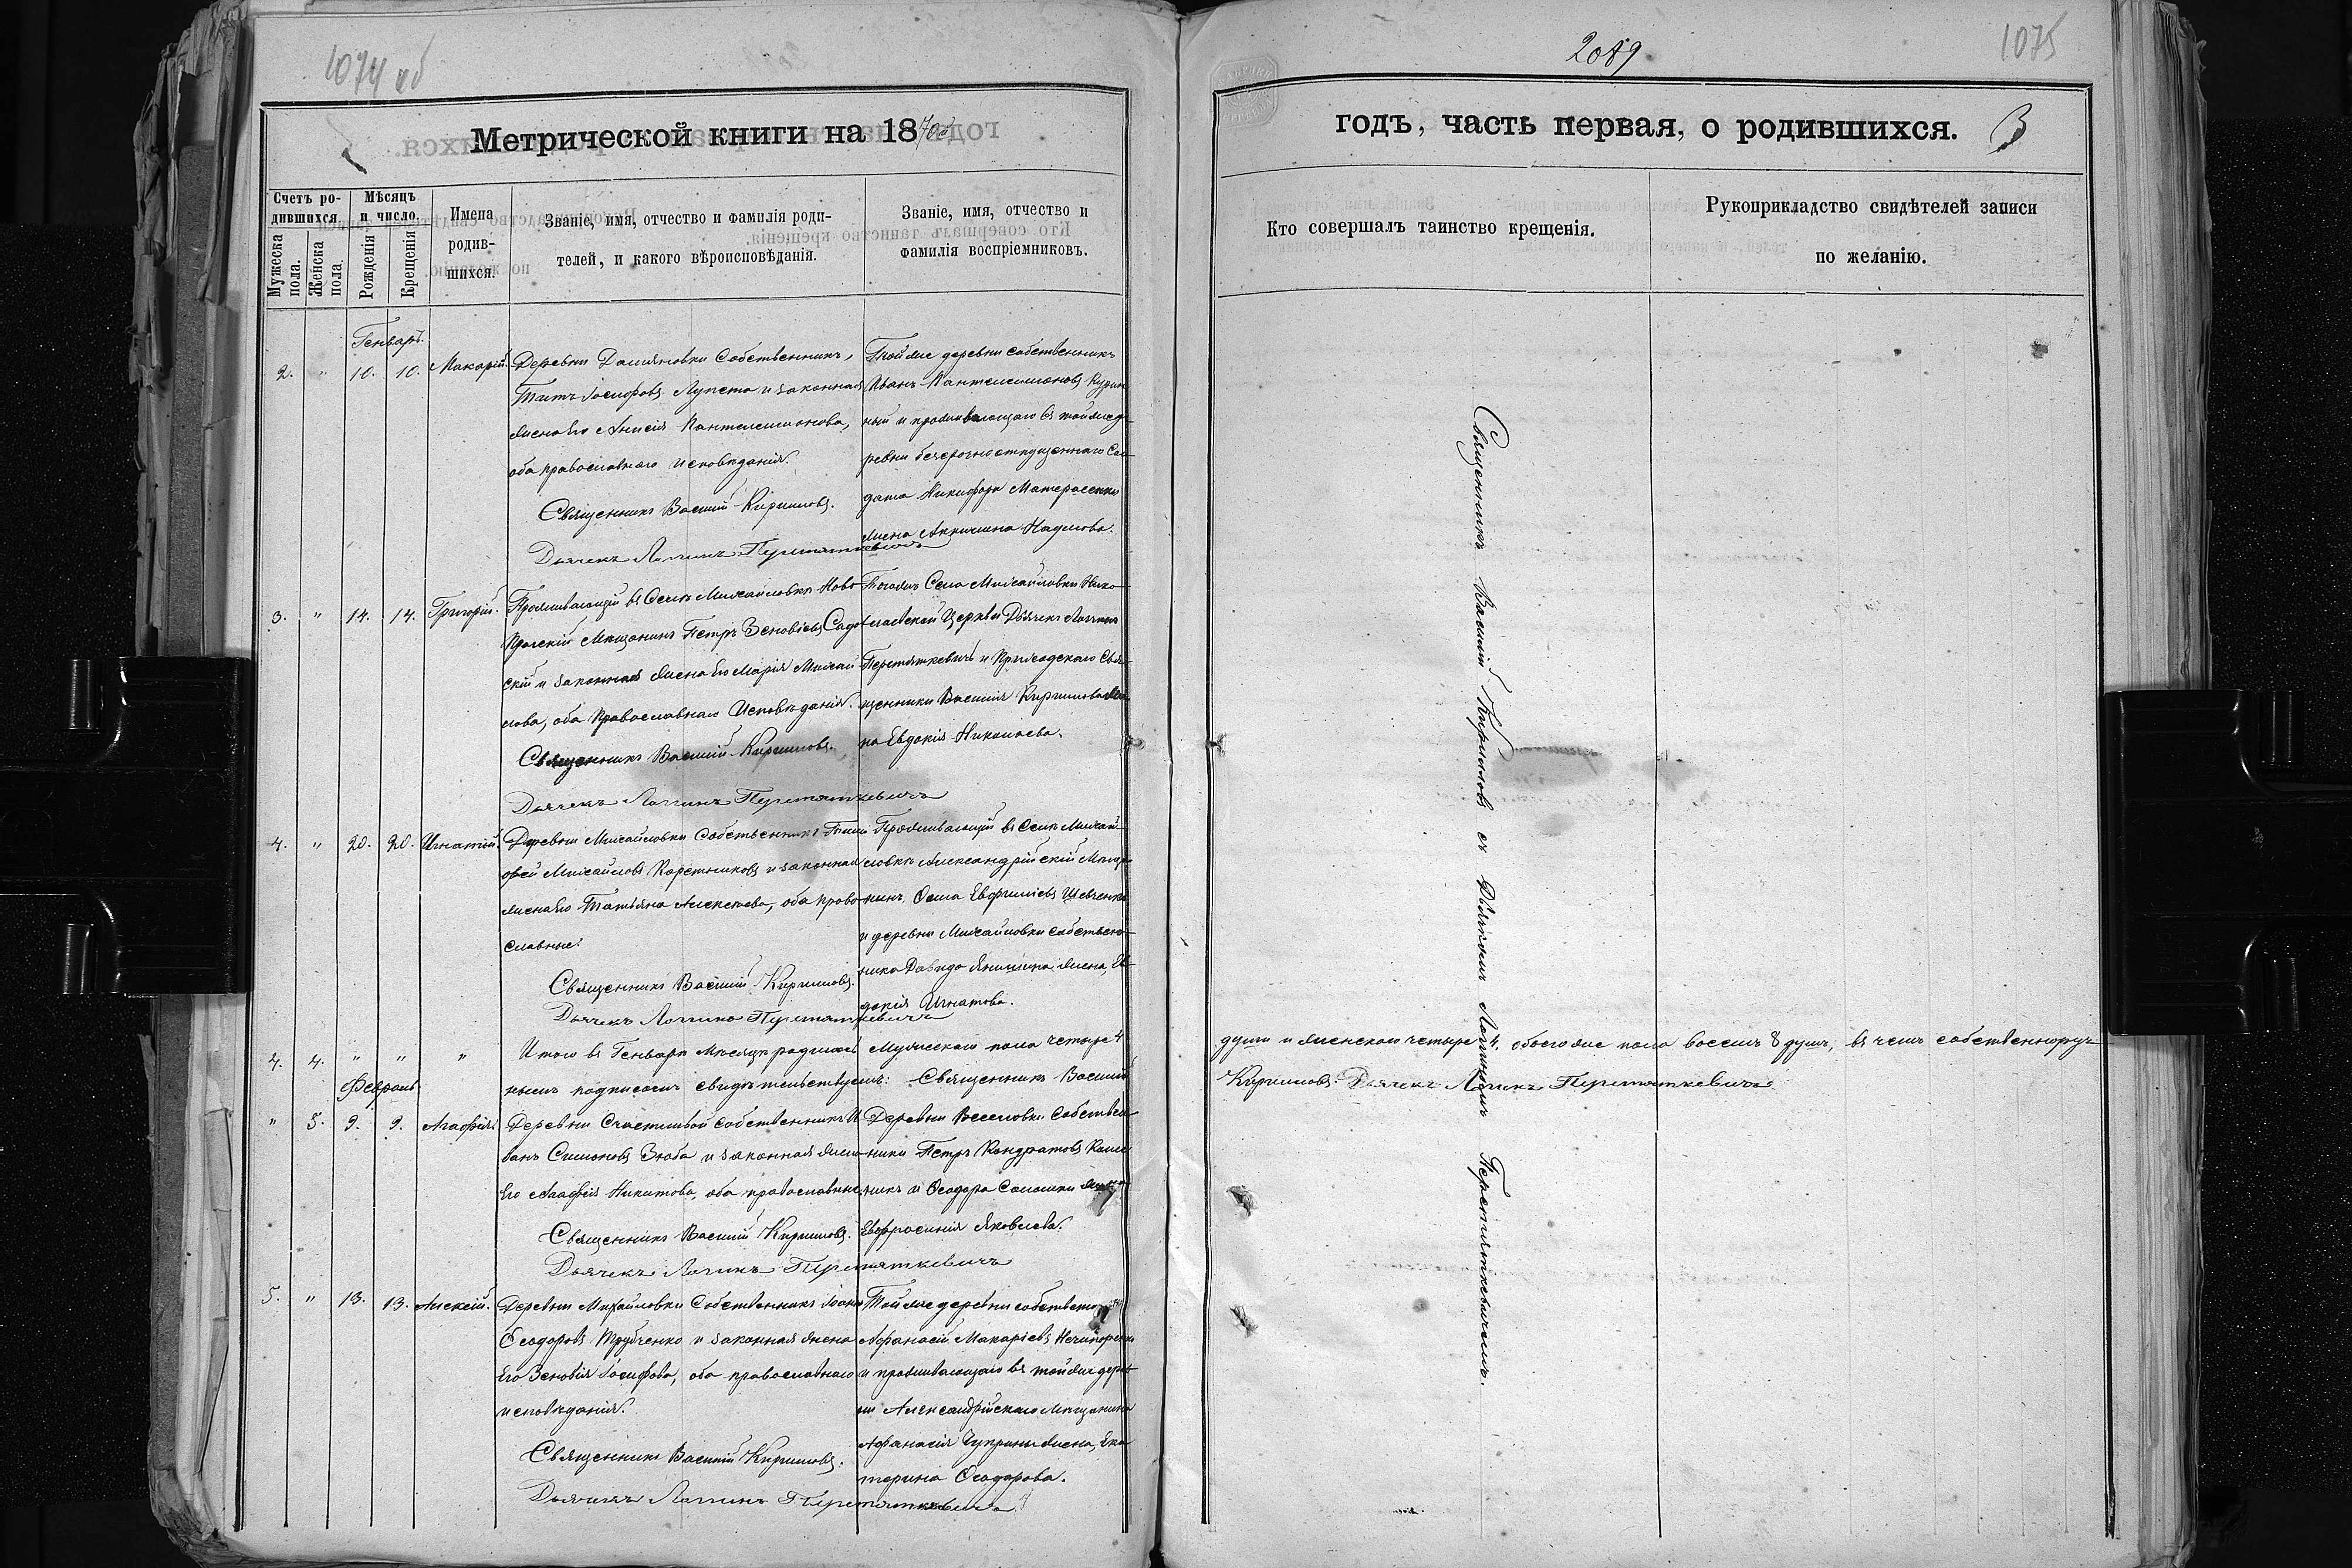 1074 об
2089
1075
Метрической книги на 1870й
годъ, часть первая, о родившихся.
3
Счетъ ро-
дившихся
Мужеска пола.
Женска пола.
Мѣсяцъ
и число.
Рожденія
Крещенія
Имена
родив-
шихся.
Званіе, имя, отчество и фамилія роди-
телей, и какого вѣроисповѣданія.
Званіе, имя, отчество и
фамилія воспріемниковъ.
Кто совершалъ таинство крещенія.
Рукоприкладство свидѣтелей записи
по желанію.
Генварь.
2. " 10. 10. Макарій.
Деревни Собственникъ,
Титъ Іосифовъ и законная
жена его Анисія Пантелеимонова,
оба православнаго исповѣданія.
Священникъ Василій Кириловъ.
Дьячекъ Логгинъ Перетяткевичъ
Той же деревни собственникъ
Иванъ Пантелеимоновъ
ный и проживающаго въ той же де
ревни безсрочноотпущеннаго Сол
дата Никифора
жена Наумова.
3. " 14. 14. Григорій.
Проживающій въ Селѣ Михайловкѣ Ново
мѣщанинъ Петръ Зеновіевъ Садов
скій и законная жена его Марія Михай
лова, оба Православнаго Исповѣданія.
Священникъ Василій Кириловъ.
Дьячекъ Логгинъ Перетяткевичъ
Тогожъ Села Михайловки Нико
лаевской Церкви Дьячекъ Логгинъ
Перетяткевичъ и Приходскаго Свя
щенника Василія Кирилова же
на Евдокія Николаева.
4. " 20. 20. Игнатій.
Деревни Михайловки Собственникъ Тимо
фей Михайловъ Каретниковъ и законная
жена его Татьяна Алексѣева, оба право
славные.
Священникъ Василій Кириловъ.
Дьячекъ Логгинъ Перетяткевичъ
Проживающій въ Селѣ Михай
ловкѣ Александрійскій Мѣща
нинъ Евфиміевъ Шевченко
и деревни Михайловки собствен
ника Давида жена, Ев
докія Игнатова.
4. 4. " " "
Итого въ Генварѣ Мѣсяцѣ родилось Мужескаго пола четыре 4
души и женскаго четыре 4. обоего же пола восемь 8 душъ, въ чемъ собственноруч
нымъ подписомъ свидѣтельствуемъ: Священникъ Василій
Кириловъ. Дьячекъ Логгинъ Перетяткевичъ
Февраль
" 5. 9. 9. Агафія.
Деревни Счастливой собственникъ И
ванъ Симоновъ Зюба и законная жена
его Агафія Никитова, оба православные,
Священникъ Василій Кириловъ.
Дьячекъ Логгинъ Перетяткевичъ
Деревни Веселовки Собствен
ники Петръ Кондратовъ
и Ѳеодора жена
Евфросинія Яковлева.
5. " 13. 13. Алексій.
Деревни Михайловки Собственникъ Іоанъ
Ѳеодоровъ Трубченко и законная жена
его Зеновія Іосифова, оба православнаго
исповѣданія.
Священникъ Василій Кириловъ.
Дьячекъ Логгинъ Перетяткевичъ
Той же деревни собственникъ
Афанасій Макаріевъ Нечипоренко
и проживающаго въ той же дерев
ни Александрійскаго мѣщанина
Афанасія Чуприны жена, Ека
терина Ѳеодорова.
Священникъ Василій Кириловъ съ Дьячкомъ Логгиномъ Перетяткевичемъ.